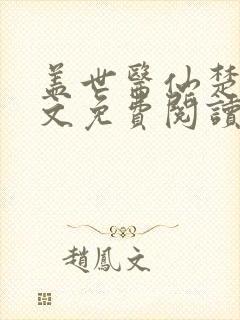 盖世醫仙楚
文免費閱讀
趙鳳文